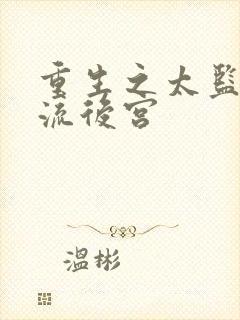 重生之太監
流後宮
溫彬